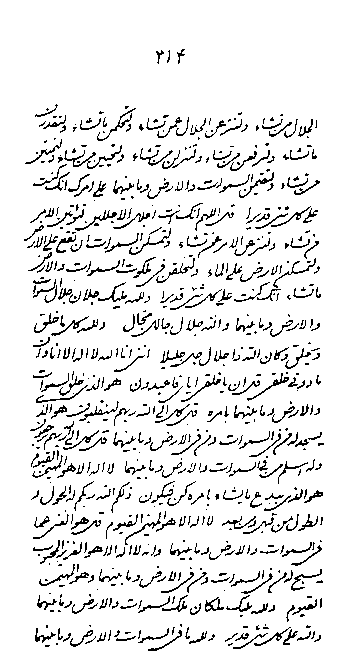 ٣١۴
الجلال من تشاء ولتنزعن الجلال عمن تشاء ولتحكمن ما تشاء ولتقدرن
ما تشاء ولترفعن من تشاء ولتنزلن من تشاء ولتحيين من تشاء ولتميتن
من تشاء ولتقيمن السموات والارض وما بينهما على امرك انك كنت
على كل شئ قديرا قل اللهم انك انت اجلل الاجللين لتؤتين الامر
من تشاء ولتنزعن الامر عمن تشاء ولتمسكن السموات ان تقع على الارض
ولتمسكن الارض على الماء ولتخلقن فى ملكوت السموات والارض
ما تشاء انك كنت على كل شئ قديرا ولله عليك جلال جلال السموات
والارض وما بينهما والله جلال جالل وله كل ما خلق
ويخلق وكان الله ذا جلال جليلا اننى انا الله لا اله الا انا وان
ما دونى خلقى قل ان يا خلقى اياى فاعبدون هو الذى خلق السموات
والارض وما بينهما بامره قل كل الى الله ربهم لينقلبون هو الذى
يسجد له من فى السموات ومن فى الارض وما بينهما قل كل اليه
وله اسلم من فى السموات والارض وما بينهما لا اله الا هو المهيمن القيوم
هو الذى يبدع ما يشاء بامره كن فيكون ذلكم الله ربكم له الحول و
الطول من قبل ومن بعد لا اله الا هو المهيمن القيوم قل هو الغنى عما
فى السموات والارض وما بينهما وانه لا اله الا هو العزيز المحبوب
يسبح له من فى السموات ومن فى الارض وما بينهما وهو المهيمن
القيوم ولله عليك ملكان ملك السموات والارض وما بينهما
والله على كل شئ قدير ولله ما فى السموات والارض وما بينهما